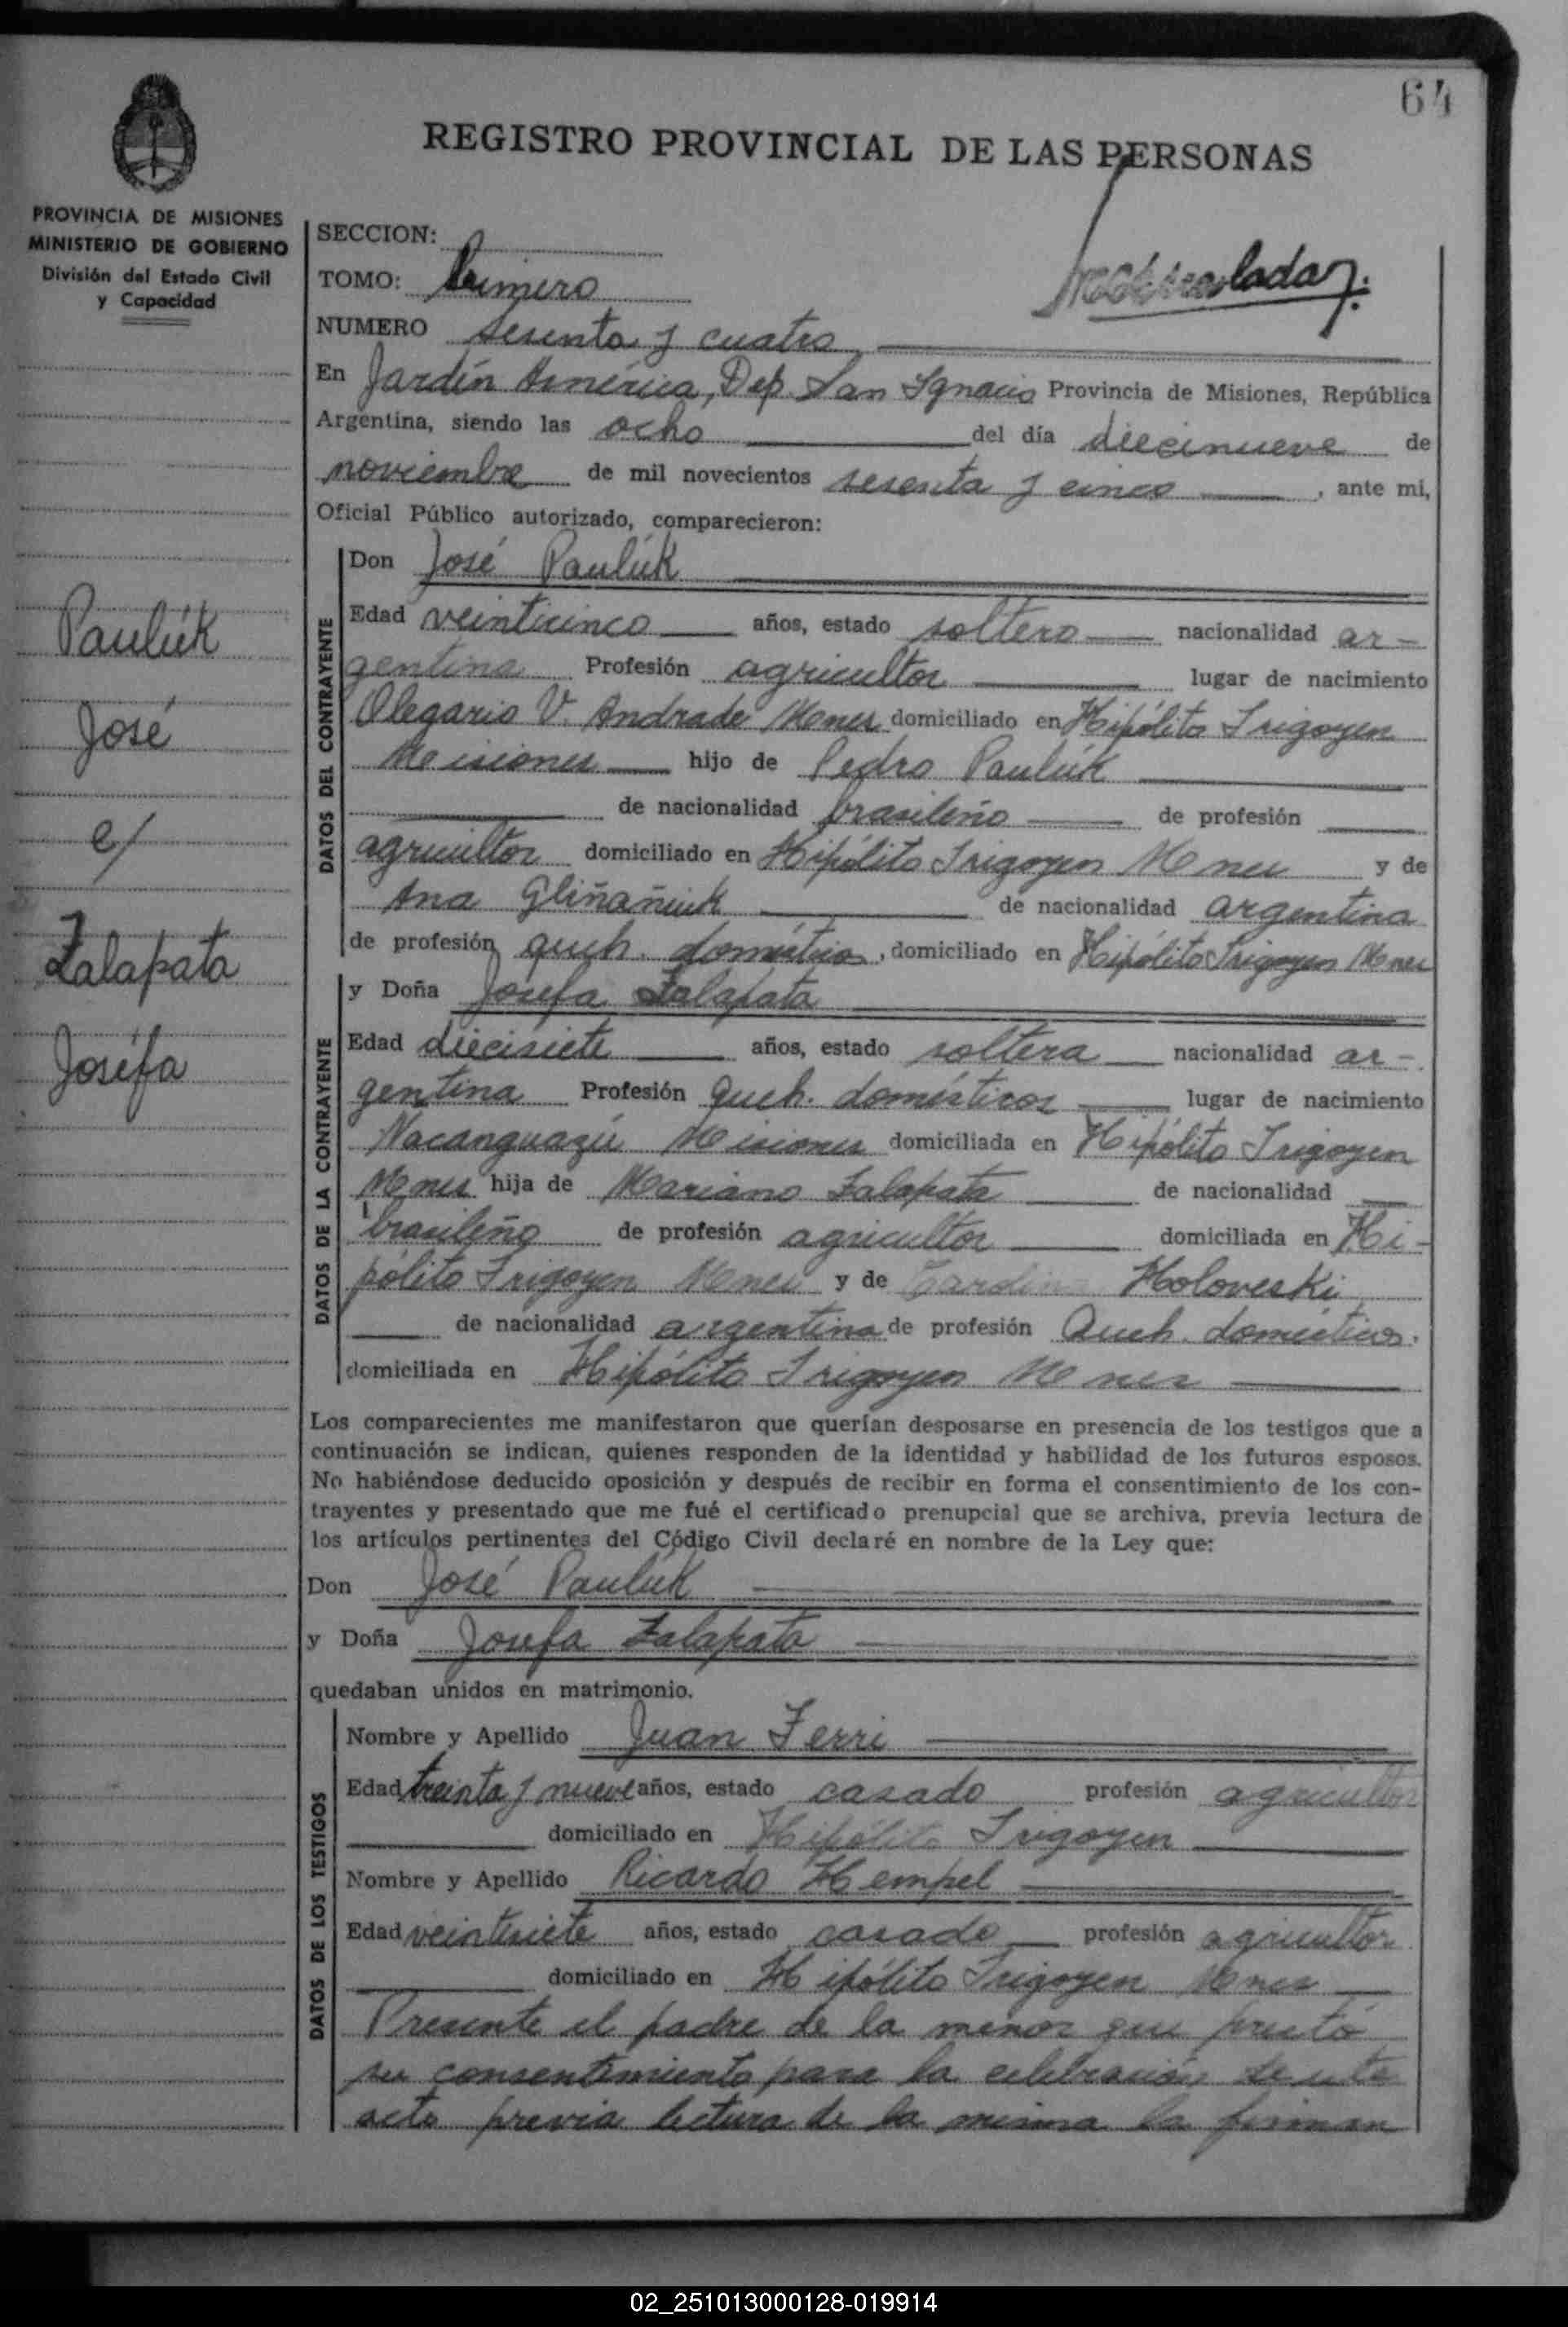 64
REGISTRO PROVINCIAL DE LAS PERSONAS
PROVINCIA DE MISIONES
MINISTERIO DE GOBIERNO
División del Estado Civil
y Capacidad
SECCION:
TOMO: Primero
NUMERO sesenta y cuatro
En Jardín América, Dep. San Ignacio Provincia de Misiones, República
Argentina, siendo las ocho del día diecinueve de
noviembre de mil novecientos sesenta y cinco, ante mi,
Oficial Público autorizado, comparecieron:
Paulúk
José
c/
Zalapata
Josefa
DATOS DEL CONTRAYENTE
Don José Paulúk
Edad veinticinco años, estado soltero nacionalidad ar-
gentina Profesión agricultor lugar de nacimiento
Olegario V. Andrade Mones domiciliado en Hipólito Irigoyen
Misiones hijo de Pedro Paulúk
de nacionalidad brasileño de profesión
agricultor domiciliado en Hipólito Irigoyen Mnes y de
Ana Gliñañiuk de nacionalidad argentina
de profesión queh. domésticos, domiciliado en Hipólito Irigoyen Mnes
DATOS DE LA CONTRAYENTE
y Doña Josefa Zalapata
Edad diecisiete años, estado soltera nacionalidad ar-
gentina Profesión queh. domésticos lugar de nacimiento
Ñacanguazú Misiones domiciliada en Hipólito Irigoyen
Mnes hija de Mariano Zalapata de nacionalidad
brasileño de profesión agricultor domiciliada en Hi-
pólito Irigoyen Mnes y de Holoveski
de nacionalidad argentina de profesión Queh. domésticos.
domiciliada en Hipólito Irigoyen Mnes
Los comparecientes me manifestaron que querían desposarse en presencia de los testigos que a
continuación se indican, quienes responden de la identidad y habilidad de los futuros esposos.
No habiéndose deducido oposición y después de recibir en forma el consentimiento de los con-
trayentes y presentado que me fué el certificado prenupcial que se archiva, previa lectura de
los artículos pertinentes del Código Civil declaré en nombre de la Ley que:
Don José Paulúk
y Doña Josefa Zalapata
quedaban unidos en matrimonio.
DATOS DE LOS TESTIGOS
Nombre y Apellido Juan Ferri
Edad treinta y nueve años, estado casado profesión agricultor
domiciliado en Hipólito Irigoyen
Nombre y Apellido Ricardo Hempel
Edad veintisiete años, estado casado profesión agricultor
domiciliado en Hipólito Irigoyen Mnes
Presente el padre de la menor que prestó
su consentimiento para la celebración de este
acto previa lectura de la misma la firman
02_251013000128-019914